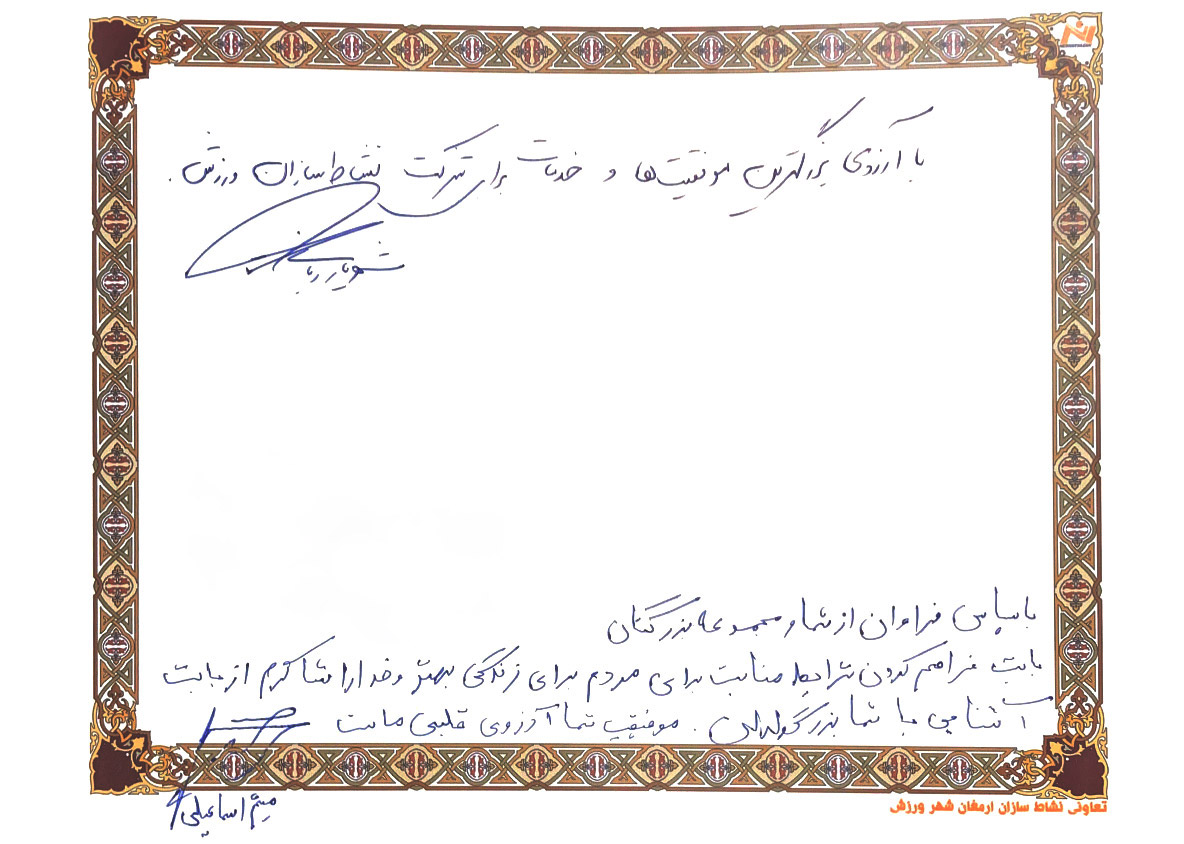 با آرزوی بزرگترین موفقیت‌ها و خدمات برای شرکت نشاط سازان ورزش.
با سپاس فراوان از شما و مجموعه بزرگتان
بابت فراهم کردن شرایط مناسب برای مردم برای زندگی بهتر و خدا را شاکرم از بابت
آشنایی با شما بزرگواران. موفقیت شما آرزوی قلبی ماست
میثم اسماعیلی
تعاونی نشاط سازان ارمغان شهر ورزش